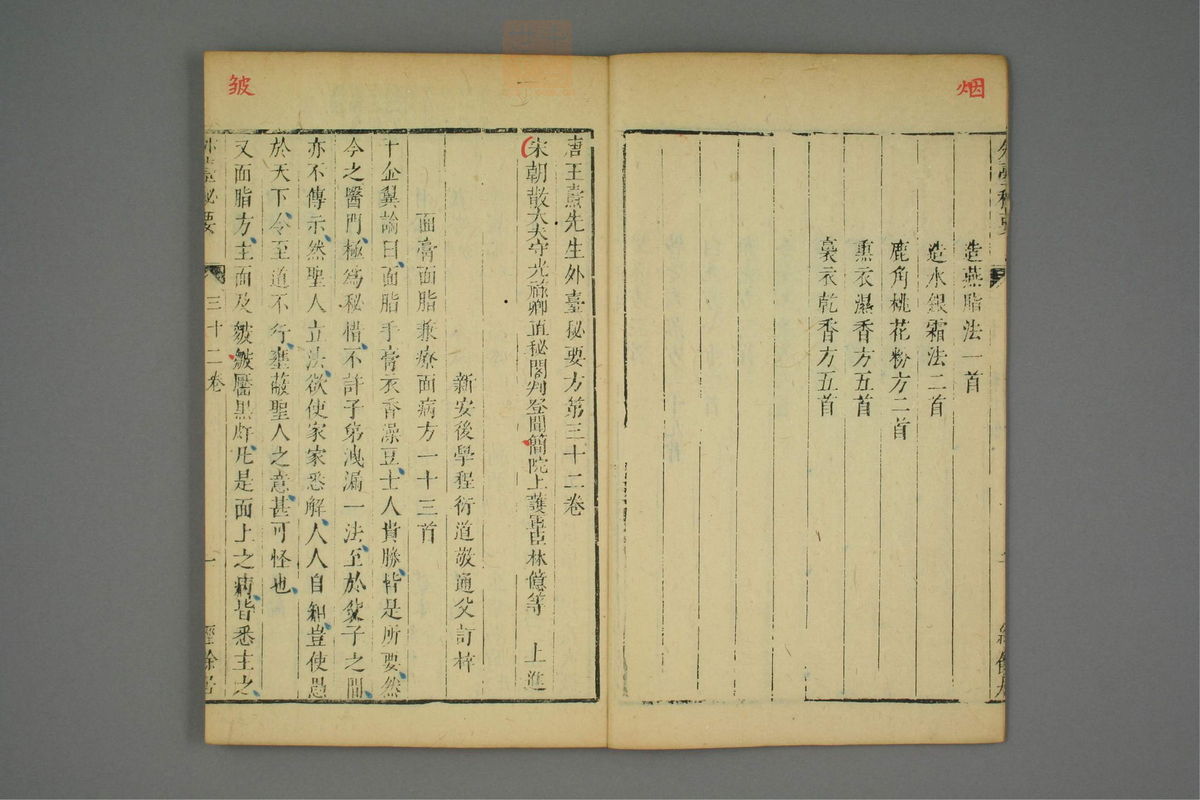 烟
外臺秘要
造燕脂法一首
造水銀霜法二首
鹿角桃花粉方二首
熏衣濕香方五首
裛衣乾香方五首
皺
唐王燾先生外臺秘要方第三十二卷
宋朝散大夫守光祿卿直秘閣判登聞簡院上護軍臣林億等　上進
新安後學程衍道敬通父訂梓
面膏面脂兼療面病方一十三首
千金翼論曰面脂手膏衣香澡豆士人貴勝皆是所要然
今之醫門極為秘惜不許子弟洩漏一法至於父子之間
亦不傳示然聖人立法欲使家家悉解人人自知豈使愚
於天下令至道不行壅蔽聖人之意甚可怪也
又面脂方主面及皴皺黶黑皯凡是面上之病皆悉主之
外臺秘要
三十二卷
一
經餘居